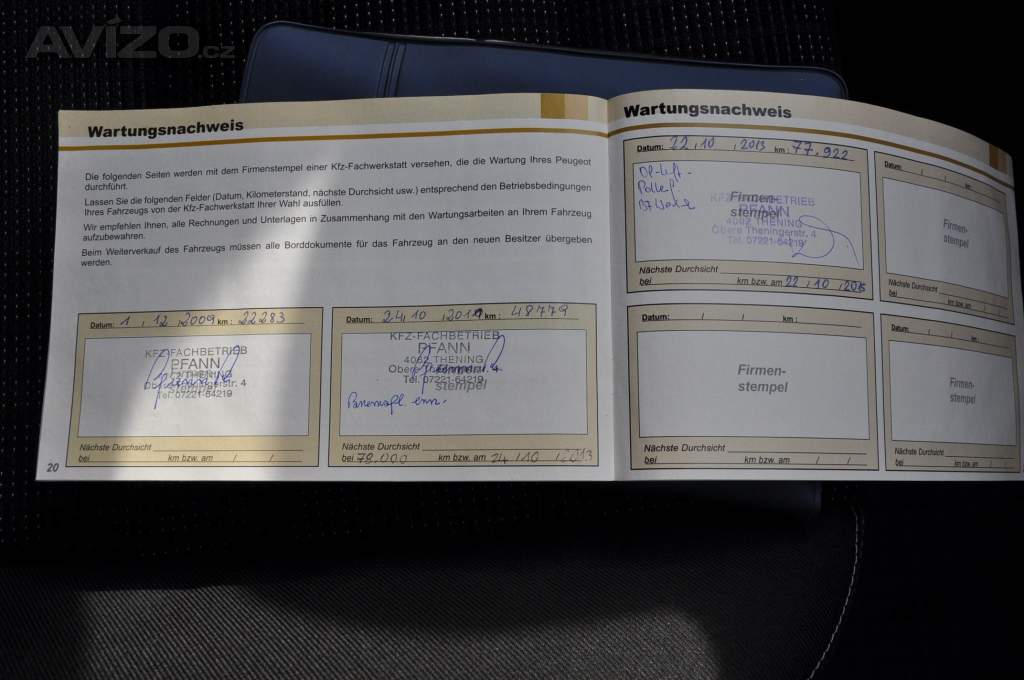 AVÍZO.cz
Wartungsnachweis
Die folgenden Seiten werden mit dem Firmenstempel einer Kfz-Fachwerkstatt versehen, die die Wartung Ihres Peugeot
durchführt.
Lassen Sie die folgenden Felder (Datum, Kilometerstand, nächste Durchsicht usw.) entsprechend den Betriebsbedingungen
Ihres Fahrzeugs von der Kfz-Fachwerkstatt Ihrer Wahl ausfüllen.
Wir empfehlen Ihnen, alle Rechnungen und Unterlagen in Zusammenhang mit den Wartungsarbeiten an Ihrem Fahrzeug
aufzubewahren.
Beim Weiterverkauf des Fahrzeugs müssen alle Borddokumente für das Fahrzeug an den neuen Besitzer übergeben
werden.
Datum: 1 , 12 ,2009 km : 22283
KFZ-FACHBETRIEB
PFANN
4062 THENING
Obere Theningerstr. 4
Tel. 07221-64219
Nächste Durchsicht
bei km bzw. am / /
Datum: 24,10 ,2011 km : 48779
KFZ-FACHBETRIEB
PFANN
4062 THENING
Obere Theningerstr. 4
Tel. 07221-64219
Firmen-
stempel
Nächste Durchsicht
bei 78.000 km bzw. am 24 ,10 ,2013
20
Wartungsnachweis
Datum: 22,10 ,2013 km : 77.922
Firmen-
stempel
KFZ-FACHBETRIEB
PFANN
4062 THENING
Obere Theningerstr. 4
Tel. 07221-64219
Nächste Durchsicht
bei km bzw. am 22 ,10 ,2015
Datum: / / km :
Firmen-
stempel
Nächste Durchsicht
bei km bzw. am / /
Datum: / / km :
Firmen-
stempel
Nächste Durchsicht
bei km bzw. am / /
Datum: / / km :
Firmen-
stempel
Nächste Durchsicht
bei km bzw. am / /